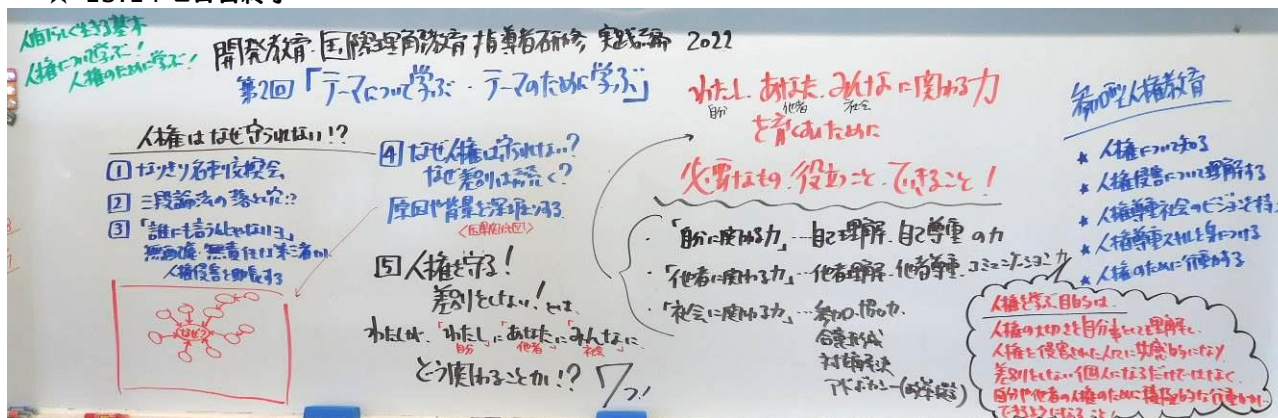 人間らしく生きる基本
人権について学ぶ!
人権のために学ぶ!
開発教育・国際理解教育 指導者研修 実践編 2022
第2回「テーマについて学ぶ・テーマのために学ぶ」
人権はなぜ守られない!?
① なりきり名刺交換会
② 三段論法の落し穴!?
③ 「誰にも言うんじゃないヨ」
無配慮・無責任な第三者が
人権侵害を助長する
なぜ?
④ なぜ人権は守られない?
なぜ差別は続く?
原因や背景を深堀りする
<因果関係図>
⑤ 人権を守る!
差別をしない!とは
わたしは、「わたし」に「あなた」に「みんな」に
自分 他者 社会
どう関わることか!?
わたし、あなた、みんなに関わる力
自分 他者 社会
を育くむために
必要なもの・役立つこと・できること!
・「自分に関わる力」…自己理解・自己尊重の力
・「他者に関わる力」…他者理解・他者尊重・コミュニケーション力
・「社会に関わる力」…参加・協力
合意形成
対立解決
アドボカシー(政策提言)
参加型人権教育
★ 人権について知る
★ 人権侵害について理解する
★ 人権尊重社会のビジョンを持つ
★ 人権尊重スキルを身につける
★ 人権のために行動する
人権を学ぶ目的は
人権の大切さを自分事として理解し、
人権を侵害された人々に共感的になり
差別をしない個人になるだけではなく、
自分や他者の人権のために積極的な行動が
できるようになること!